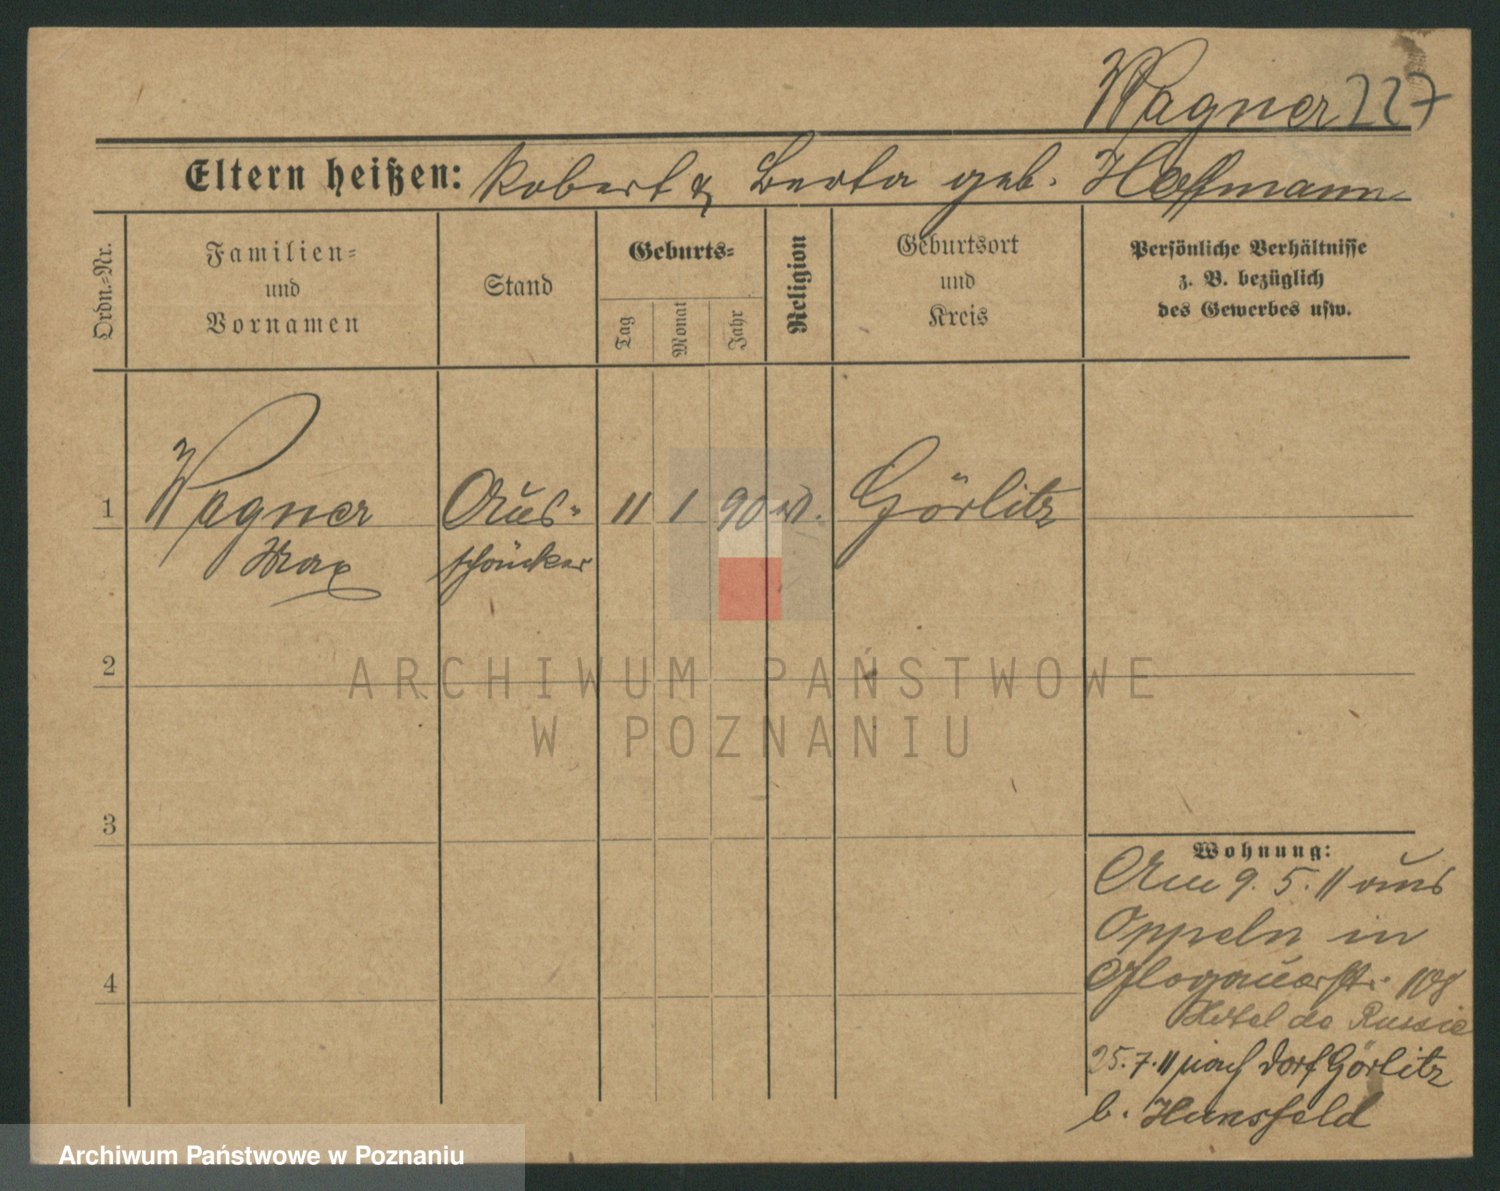 Wagner 227
Eltern heißen: Robert & Berta geb. Hofmann
Ordn.-Nr.
Familien-
und
Vornamen
Stand
Geburts-
Tag
Monat
Jahr
Religion
Geburtsort
und
Kreis
Persönliche Verhältnisse
z. B. bezüglich
des Gewerbes usw.
1 Wagner Aus- 11 1 90 Görlitz
Max
2
ARCHIWUM PAŃSTWOWE
W POZNANIU
3
4
Wohnung:
Am 9. 5. 11 aus
Oppeln in
Glogauerstr.
Hotel de Russie
25. 7. 11 nach Dorf Görlitz
b. Hunsfeld
Archiwum Państwowe w Poznaniu